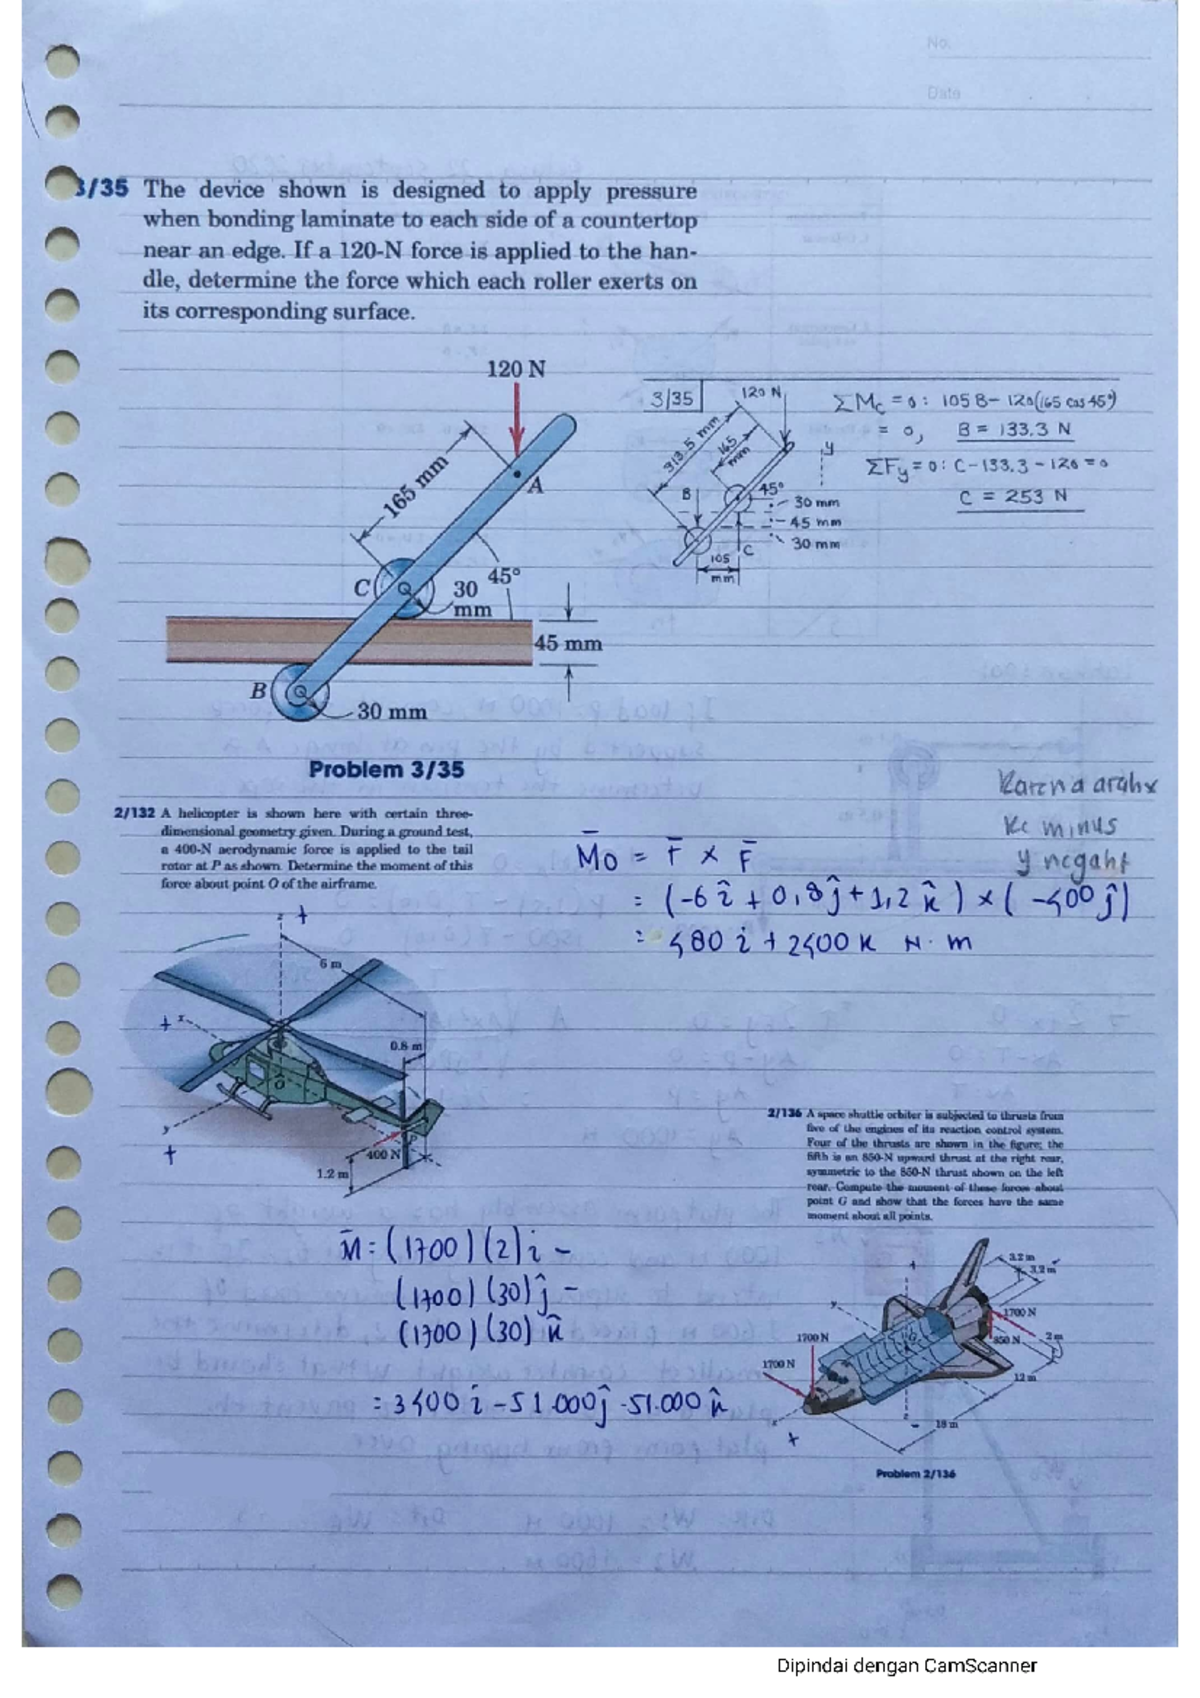 No.
Date
3/35 The device shown is designed to apply pressure
when bonding laminate to each side of a countertop
near an edge. If a 120-N force is applied to the han-
dle, determine the force which each roller exerts on
its corresponding surface.
120 N
165 mm
A
C
30
mm
45°
45 mm
B
30 mm
Problem 3/35
3/35
120 N
313.5 mm
165
mm
y
B
45°
30 mm
45 mm
30 mm
C
105
mm
ΣMc = 0: 105 B - 120(165 cos 45°)
= 0, B = 133.3 N
ΣFy = 0: C - 133.3 - 120 = 0
C = 253 N
2/132 A helicopter is shown here with certain three-
dimensional geometry given. During a ground test,
a 400-N aerodynamic force is applied to the tail
rotor at P as shown. Determine the moment of this
force about point O of the airframe.
z +
6 m
+ x
0.8 m
O
y
+
P
400 N
1.2 m
Karena arahx
ke minus
y negatif
M̄o = r̄ × F̄
= (-6 î + 0,8 ĵ + 1,2 k̂) × (-400 ĵ)
= 480 i + 2400 k N.m
2/136 A space shuttle orbiter is subjected to thrusts from
five of the engines of its reaction control system.
Four of the thrusts are shown in the figure; the
fifth is an 850-N upward thrust at the right rear,
symmetric to the 850-N thrust shown on the left
rear. Compute the moment of these forces about
point G and show that the forces have the same
moment about all points.
M̄ = (1700)(2) i -
(1700)(30) ĵ -
(1700)(30) k̂
= 3400 i - 51.000 ĵ - 51.000 k̂
+
3.2 m
3.2 m
y
1700 N
1700 N
850 N
2 m
1700 N
12 m
x
z
18 m
+
Problem 2/136
Dipindai dengan CamScanner